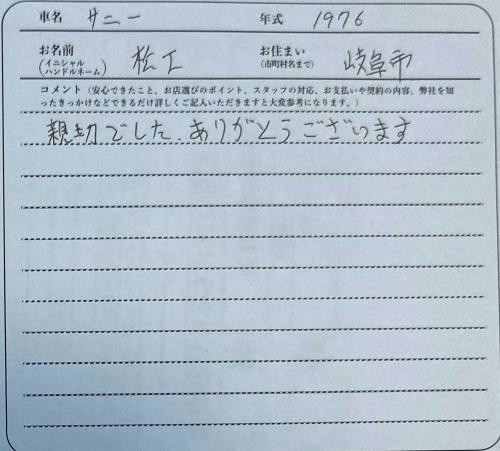 車名 サニー 年式 1976
お名前 (イニシャル ハンドルネーム) 松工 お住まい (市町村名まで) 岐阜市
コメント(安心できたこと、お店選びのポイント、スタッフの対応、お支払いや契約の内容、弊社を知
ったきっかけなどできるだけ詳しくご記入いただきますと大変参考になります。)
親切でした、ありがとうございます